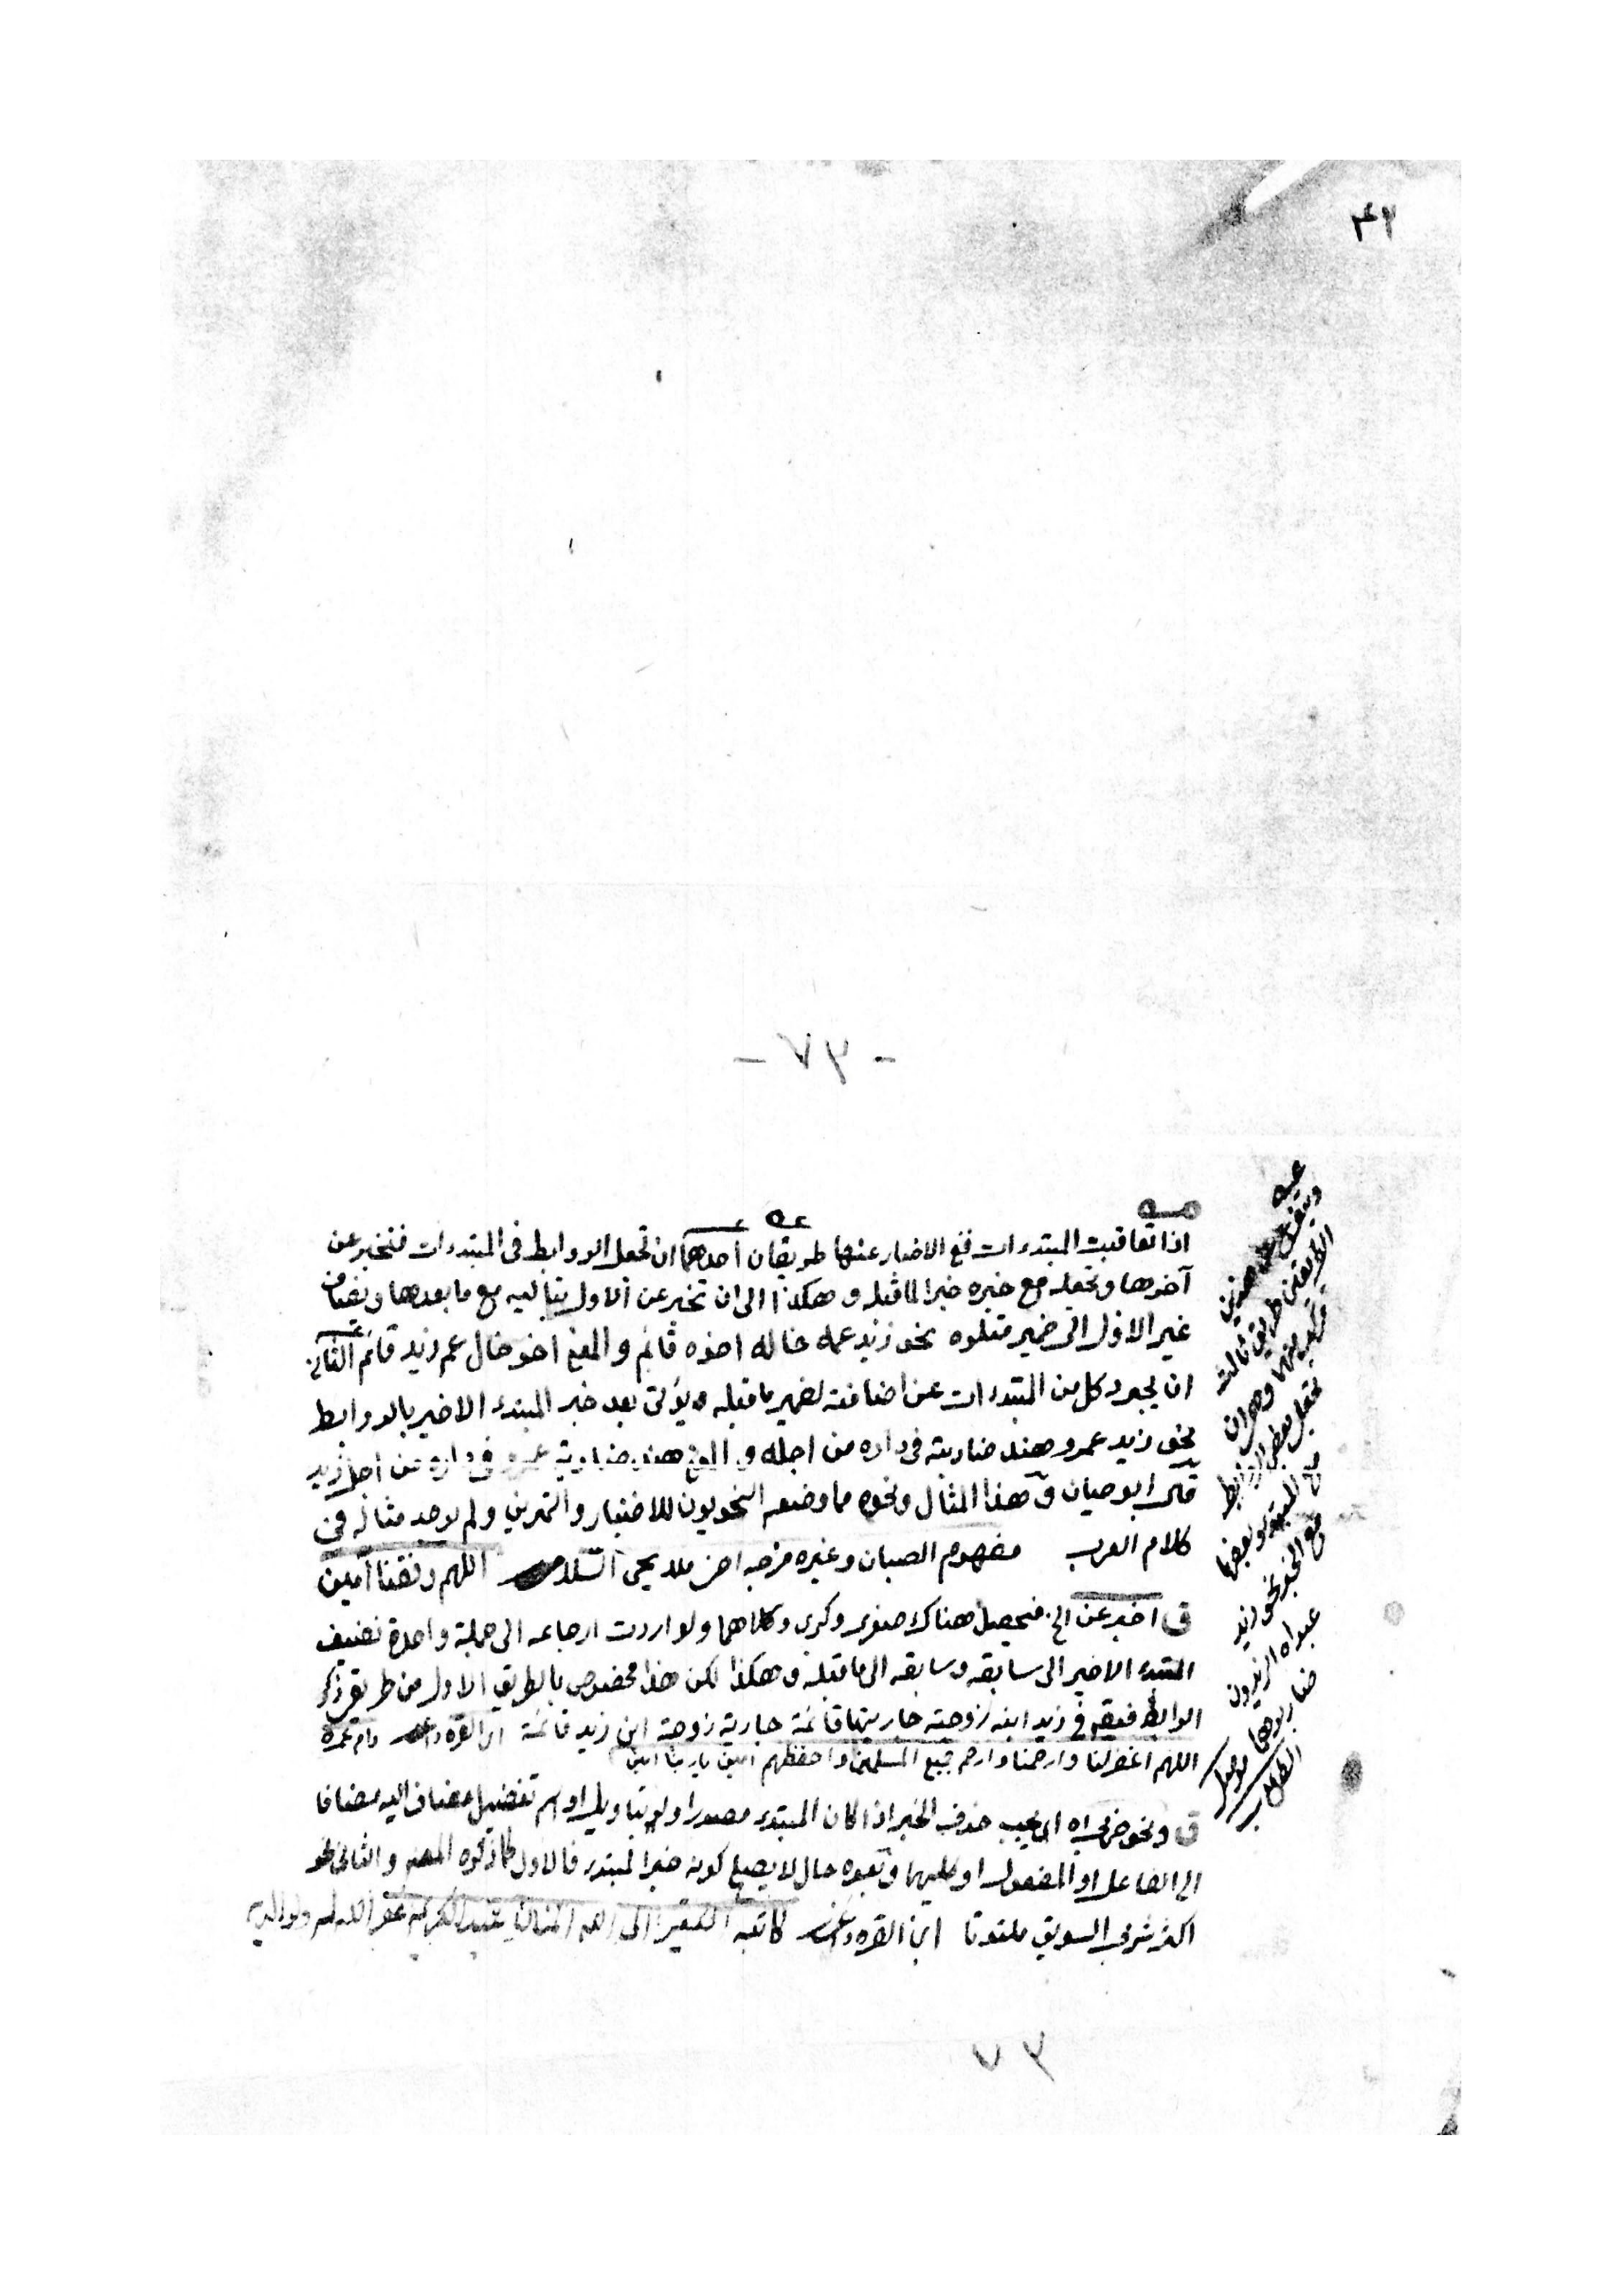 ٤٢
- ٧٣ -
مه
اذا تعاقبت المبتدءات ففى الاخبار عنها طريقان احدهما ان تجعل الروابط فى المبتدءات فتخبر عن
آخرها وتجعله مع خبره خبرا لما قبله وهكذا الى ان تخبر عن الاول بتاليه مع ما بعدها ويضاف
غير الاول الى ضمير متلوه نحو زيد عمه خاله اخوه قائم والمعنى اخو خال عم زيد قائم الثانى
ان يجرد كل من المبتدءات عن اضافته لضمير ما قبله ويؤتى بعد خبر المبتدء الاخير بالروابط
نحو زيد عمرو هند ضاربته فى داره من اجله والمعنى هند ضاربة عمرو فى داره من اجل زيد
قال ابو حيان وهذا المثال ونحوه مما وضعه النحويون للاختبار والتمرين ولم يوجد مثاله فى
كلام العرب مفهوم الصبان وغيره اللهم وفقنا آمين
ق اخبر عن الخ فيحصل هناك صغرى وكبرى وكلاهما ولو اردت ارجاعه الى جملة واحدة تضيف
المبتدء الاخير الى سابقه وسابقه الى ما قبله وهكذا لكن هذا مخصوص بالطريق الاول من طريق ذكر
الروابط فيقال فى زيد ابنه زوجته جاريتها قائمة جارية زوجة ابن زيد قائمة ابن القره داغى دام عمره
اللهم اغفر لنا وارحمنا وارحم جميع المسلمين واحفظهم امين يا ربنا امين
ق ونحو ضربى اه اى يجب حذف الخبر اذا كان المبتدء مصدرا ولو بتأويل او اسم تفضيل مضاف اليه مضافا
الى الفاعل او المفعول او كليهما وبعده حال لا يصلح كونه خبرا لمبتدء فالاول كما ذكره المصنف والثانى نحو
اكثر شربى السويق ملتوتا ابن القره داغى كاتبه الفقير الى الله المنان عبد الكريم غفر الله له ولوالديه
ويتفرع على هذين
الطريقين طريق ثالث
مركب منهما وهو ان
تجعل بعض الروابط
مع المبتدء وبعضها
مع الخبر نحو زيد
عبداه الزيدون
ضاربوهما
٧٣